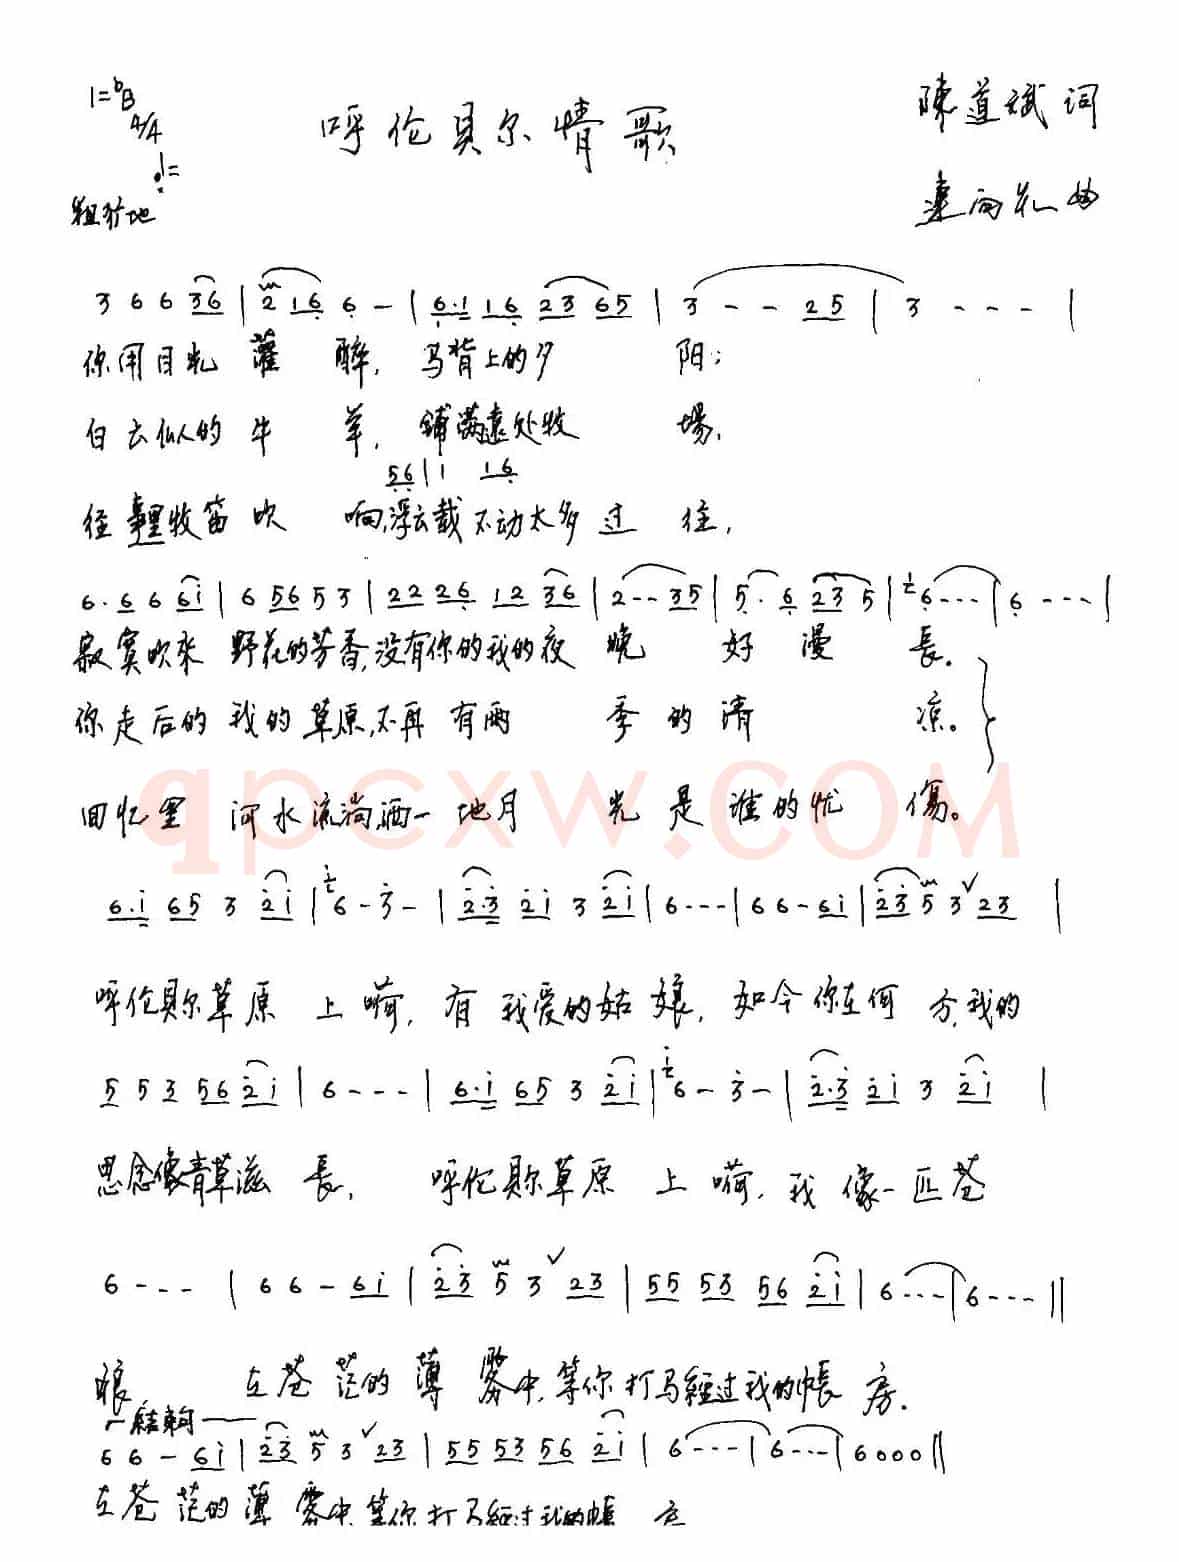 1=ᵇB
4/4
呼伦贝尔情歌
陳道斌 词
曲
粗犷地
3 6 6 36 | 2 16 6 - | 6·1 16 23 65 | 3 - - 25 | 3 - - - |
你用目光 灌 醉, 马背上的夕 阳;
白云似的 牛 羊, 铺满遠处牧 場,
56 | 1 16
往事里牧笛吹 响,浮云载不动太多过 往,
6·6 6 6i | 6 56 5 3 | 22 26 12 36 | 2 - - 35 | 5·6 23 5 | 6 - - - | 6 - - - |
寂寞吹来 野花的芳香,没有你的我的夜 晚 好 漫 長。
你走后的 我的草原,不再 有雨 季 的 清 凉。
回忆里 河水流淌,洒一地月 光 是 谁的忧 傷。
qpcxw.com
6·i 65 3 2i | 6 - 3 - | 2·3 2i 3 2i | 6 - - - | 6 6 - 6i | 23 5 3 23 |
呼伦贝尔草原 上嗬, 有 我爱的姑 娘, 如今你在何 方,我的
5 5 3 56 2i | 6 - - - | 6·i 65 3 2i | 6 - 3 - | 2·3 2i 3 2i |
思念像青草滋 長, 呼伦贝尔草原 上 嗬, 我 像一匹苍
6 - - - | 6 6 - 6i | 23 5 3 23 | 55 53 56 2i | 6 - - - | 6 - - - ||
狼, 在苍 茫的 薄 雾中,等你打马經过我的帳 房.
結束句
6 6 - 6i | 23 5 3 23 | 55 53 56 2i | 6 - - - | 6 - - - | 6 0 0 0 ||
在苍 茫的 薄 雾中,等你打马經过我的帳 房